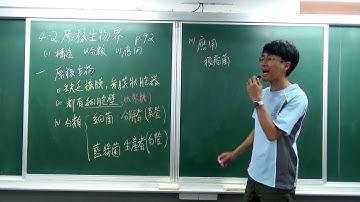 4-2 原核生物界 p.92
(1) 構造 (2) 分類 (3) 應用
一. 原核生物
(1) 缺乏核膜, 無膜狀胞器
(2) 都有細胞壁 (肽聚醣)
(3) 分類 細菌 分解者 (異營)
藍綠菌 生產者 (自營)
(4) 應用
根瘤菌